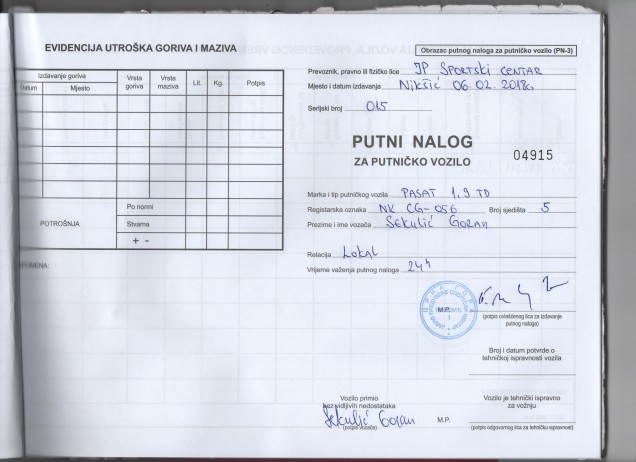 EVIDENCIJA UTROŠKA GORIVA I MAZIVA
Izdavanje goriva
Datum
Mjesto
Vrsta goriva
Vrsta maziva
Lit.
Kg.
Potpis
POTROŠNJA
Po normi
Stvarna
+ -
Obrazac putnog naloga za putničko vozilo (PN-3)
Prevoznik, pravno ili fizičko lice JP SPORTSKI CENTAR
Mjesto i datum izdavanja Nikšić 06.02.2018g
Serijski broj 015
PUTNI NALOG
ZA PUTNIČKO VOZILO
04915
Marka i tip putničkog vozila PASAT 1,9 TD
Registarska oznaka NK CG-056 Broj sjedišta 5
Prezime i ime vozača Sekulić Goran
Relacija Lokal
Vrijeme važenja putnog naloga 24h
M.P.
(potpis ovlašćenog lica za izdavanje
putnog naloga)
Broj i datum potvrde o
tehničkoj ispravnosti vozila
Vozilo primio
bez vidljivih nedostataka
Sekulić Goran
(potpis vozača)
M.P.
Vozilo je tehnički ispravno
za vožnju
(potpis odgovornog lica za tehničku ispravnost)